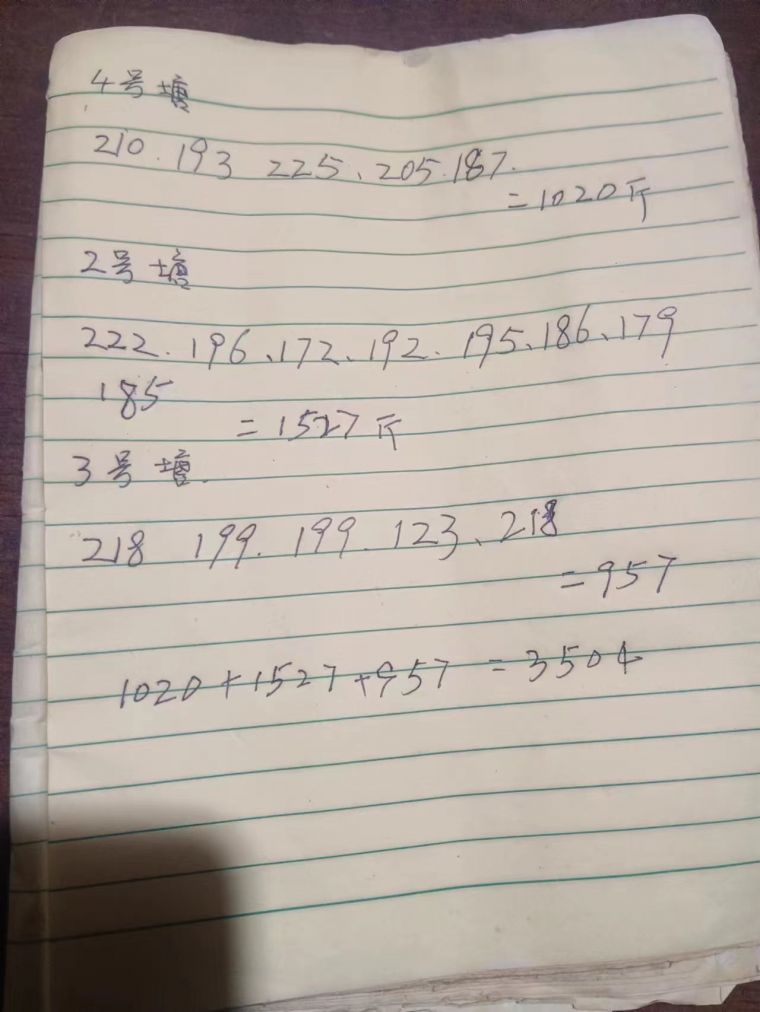 4号塘
210.193 225、205.187.
=1020斤
2号塘
222.196、172、192.195、186、179
185 =1527斤
3号塘.
218 199.199.123、218
=957
1020+1527+957=3504